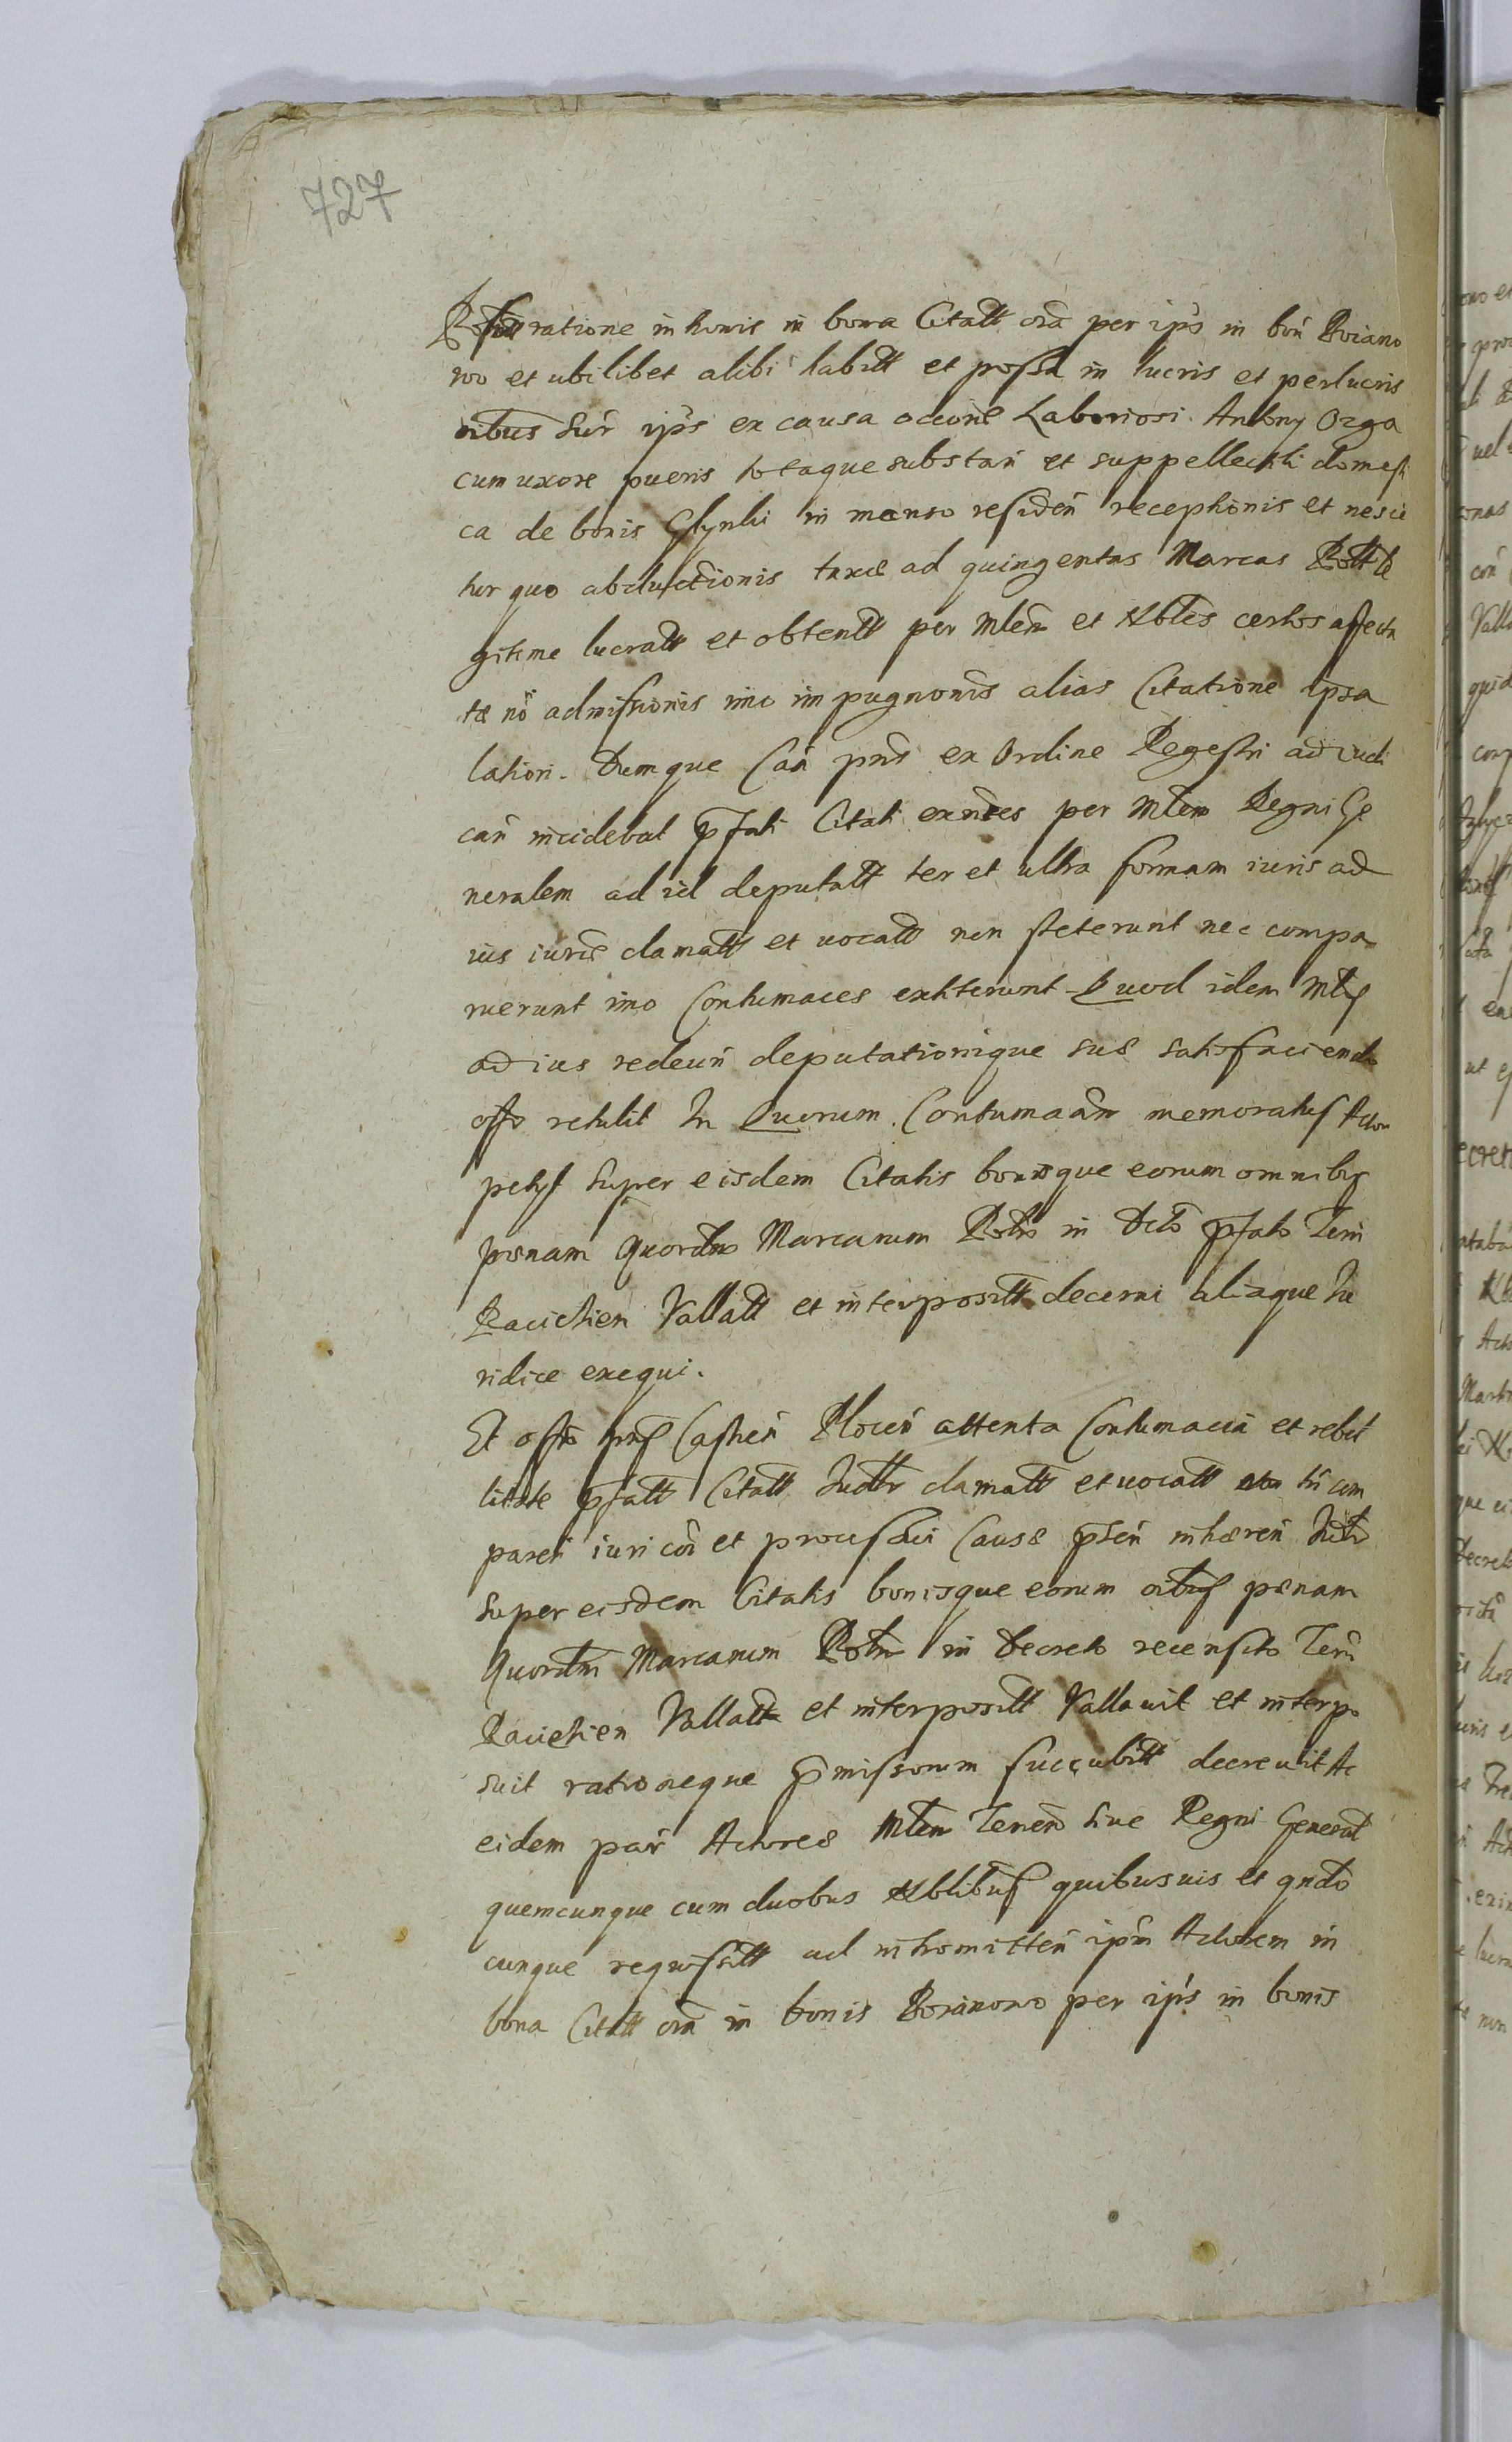 727
ratione intromis in bona Citatt oīa per ips in boń Boiano
wo et ubilibet alibi habitt et possß in lucris et perlucris
oībus sūr ips ex causa occōne Laboriosi Antony Ozga
cum uxore pueris totaque substań et suppellectili domesti
ca de bonis Glynki in manso resideń receptionis et nescie
tur quo abductionis taxæ ad quingentas Marcas Poll le
gitime lucratt et obtentt per Mlem et Nbles certos affecta
tæ nō admissionis imo impugnonis alias Citatione ipsa
lation. Dumque Cań pns ex Ordine Regestri ad iudi
cań incidebat p̄fati Citati exntes per Mlem Regni Ge
neralem ad id deputatt ter et ultra formam iuris ad
ius iurđe clamatt et uocatt non steterunt nec compa
ruerunt imo Contumaces extiterunt Quod idem Mtis
ad ius redeuń deputationique suæ satisfaciendo
offo retulit In Quorum Contumaciam memoratus Actor
petyt super eisdem Citatis bonisque eorum omnibus
pœnam quordm Marcarum Poln in Dcto p̄fato Terrī
Raciehien Vallatt et interpositt decerni aliaque Iu
ridice exequi.
Et offm pns Castreń Ploceń attenta Contumacia et rebel
litate p̄fatt Citatt Iudtr clamatt et uocatt tn com
pareń iuri coī et processui Causæ p̄sen inhæreń
super eisdem Citatis bonisque eorum oībus pœnam
quordm Marcarum Poln in Decreto recensito Terrī
Raciehien Vallatt et interpositt Vallauit et interpo
suit rationeque p̄missorum succubitt decreuit Ac
eidem pań Actoreæ Mlem Terreń siue Regni Generał
quemcunque cum duobus Nblibus quibusuis et qndo
cunque requisitt ad intromitteń ipm Actorem in
bona Citatt oīa in bonis Boianowo per ips in bonis